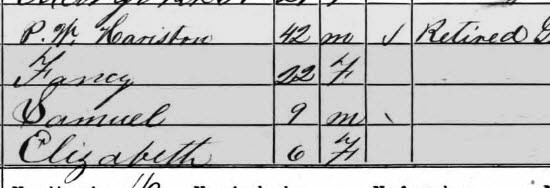 P. W. Hariston 42 m ✓ Retired
Fancy 22 F
Samuel 9 m
Elizabeth 6 F